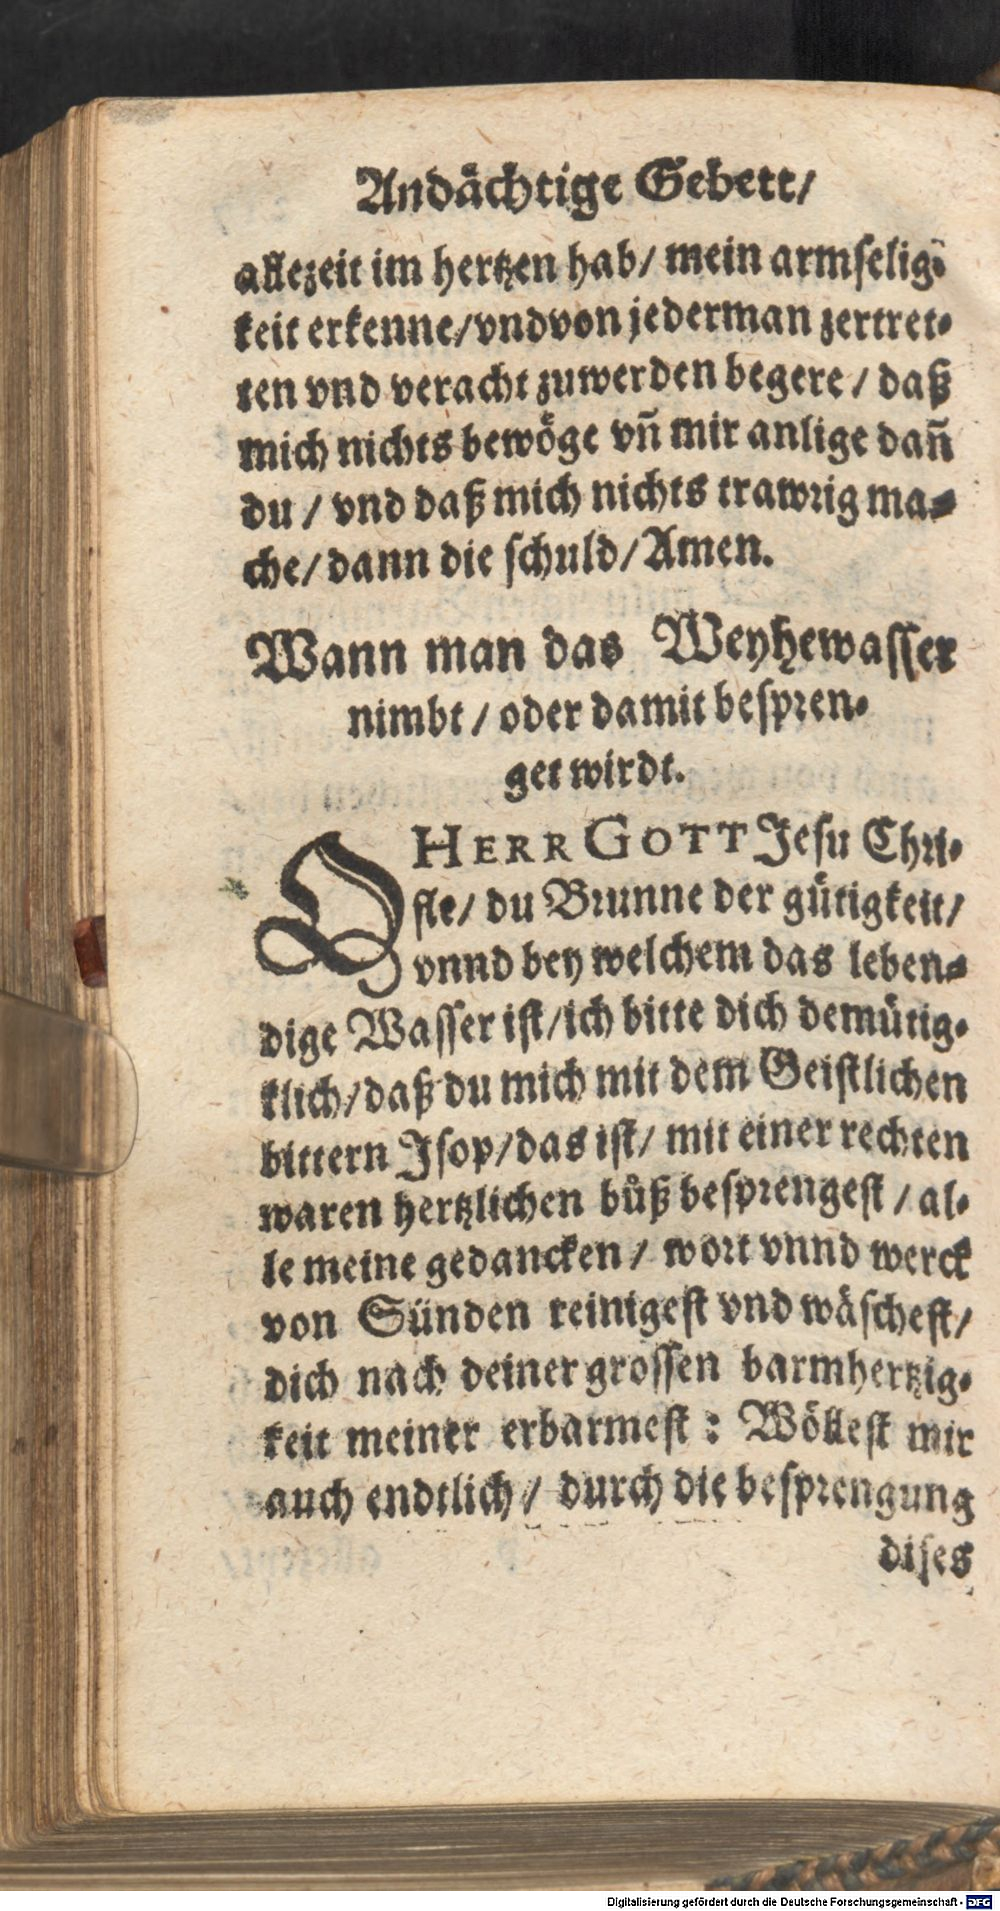 Andächtige Gebett/
allezeit im hertzen hab/ mein armselig-
keit erkenne/vndvon jederman zertret-
ten vnd veracht zuwerden begere / daß
mich nichts bewöge vn̄ mir anlige dan̄
du / vnd daß mich nichts trawrig ma-
che/ dann die schuld/ Amen.
Wann man das Weyhewasser
nimbt / oder damit bespren-
get wirdt.
O HERR GOTT Jesu Chri-
ste/ du Brunne der gütigkeit/
vnnd bey welchem das leben-
dige Wasser ist/ich bitte dich demütig-
klich/daß du mich mit dem Geistlichen
bittern Jsop/das ist/ mit einer rechten
waren hertzlichen bůß besprengest / al-
le meine gedancken / wort vnnd werck
von Sünden reinigest vnd wäschest/
dich nach deiner grossen barmhertzig-
keit meiner erbarmest : Wöllest mir
auch endtlich / durch die besprengung
dises
Digitalisierung gefördert durch die Deutsche Forschungsgemeinschaft - DFG